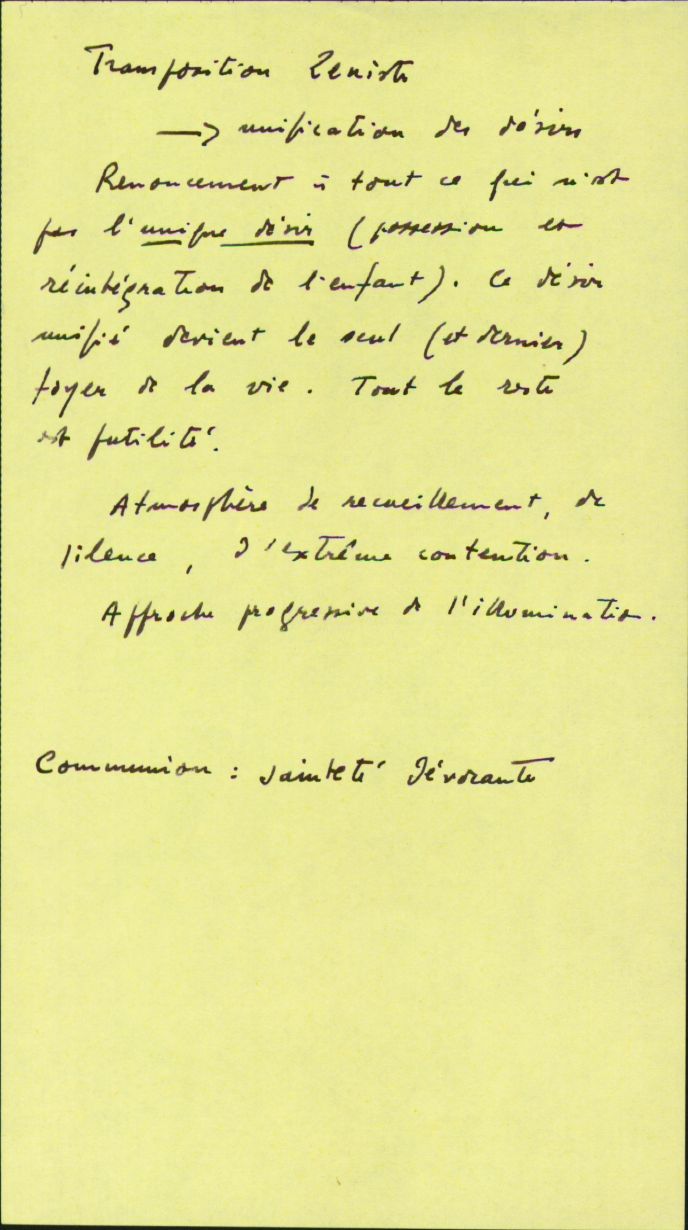 Transposition Zeniste
→ unification des désirs
Renoncement à tout ce qui n'est
pas l'unique désir (possession et
réintégration de l'enfant). Ce désir
unifié devient le seul (et dernier)
foyer de la vie. Tout le reste
est futilité.
Atmosphère de recueillement, de
silence, d'extrême contention.
Approche progressive de l'illumination.
Communion : sainteté dévorante